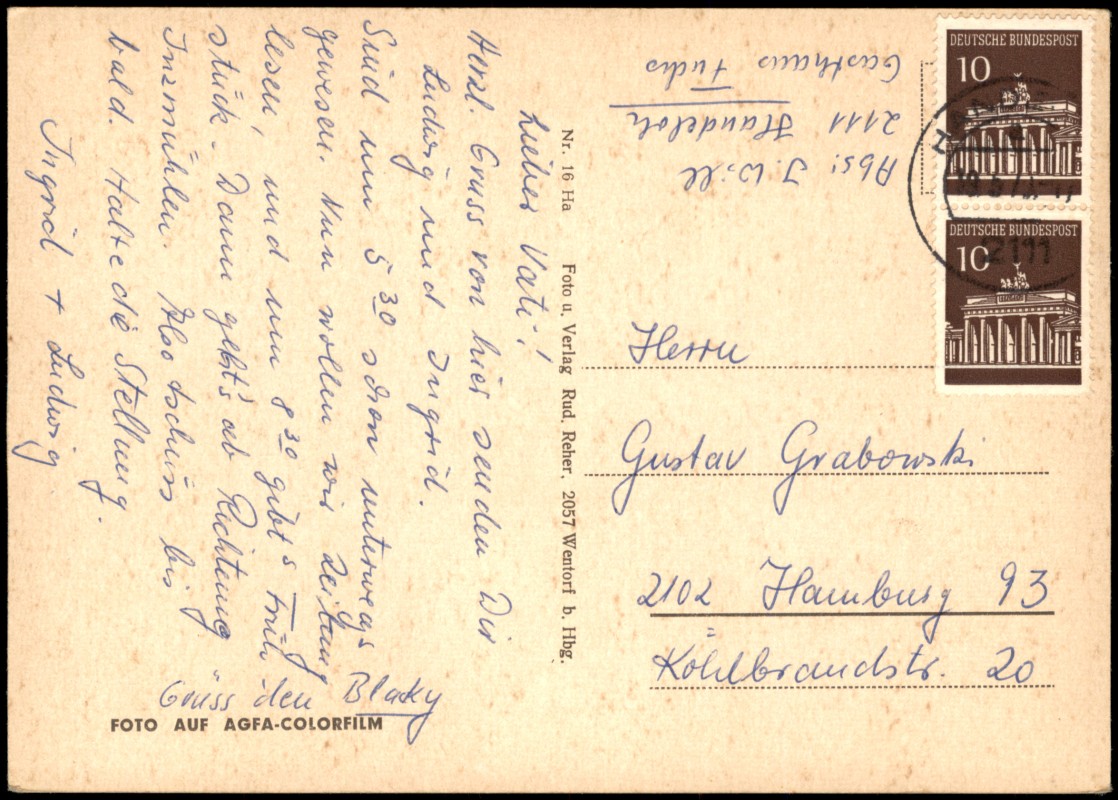 Lieber Vati!
Herzl. Gruss von hier senden Dir
Ludwig und Ingrid.
Sind um 5 30 schon unterwegs
gewesen. Nun wollen wir Zeitung
lesen, und um 8 30 gibt's Früh
stück. Dann geht's ab Richtung
Inzmühlen. Also tschüss bis
bald. Halte die Stellung.
Ingrid + Ludwig
Grüss den Blacky
FOTO AUF AGFA-COLORFILM
Nr. 16 Ha Foto u. Verlag Rud. Reher, 2057 Wentorf b. Hbg.
Abs: I. Will
2111 Handeloh
Gasthaus Fuchs
DEUTSCHE BUNDESPOST
10
DEUTSCHE BUNDESPOST
10
2111
Herrn
Gustav Grabowski
2102 Hamburg 93
Köhlbrandstr. 20